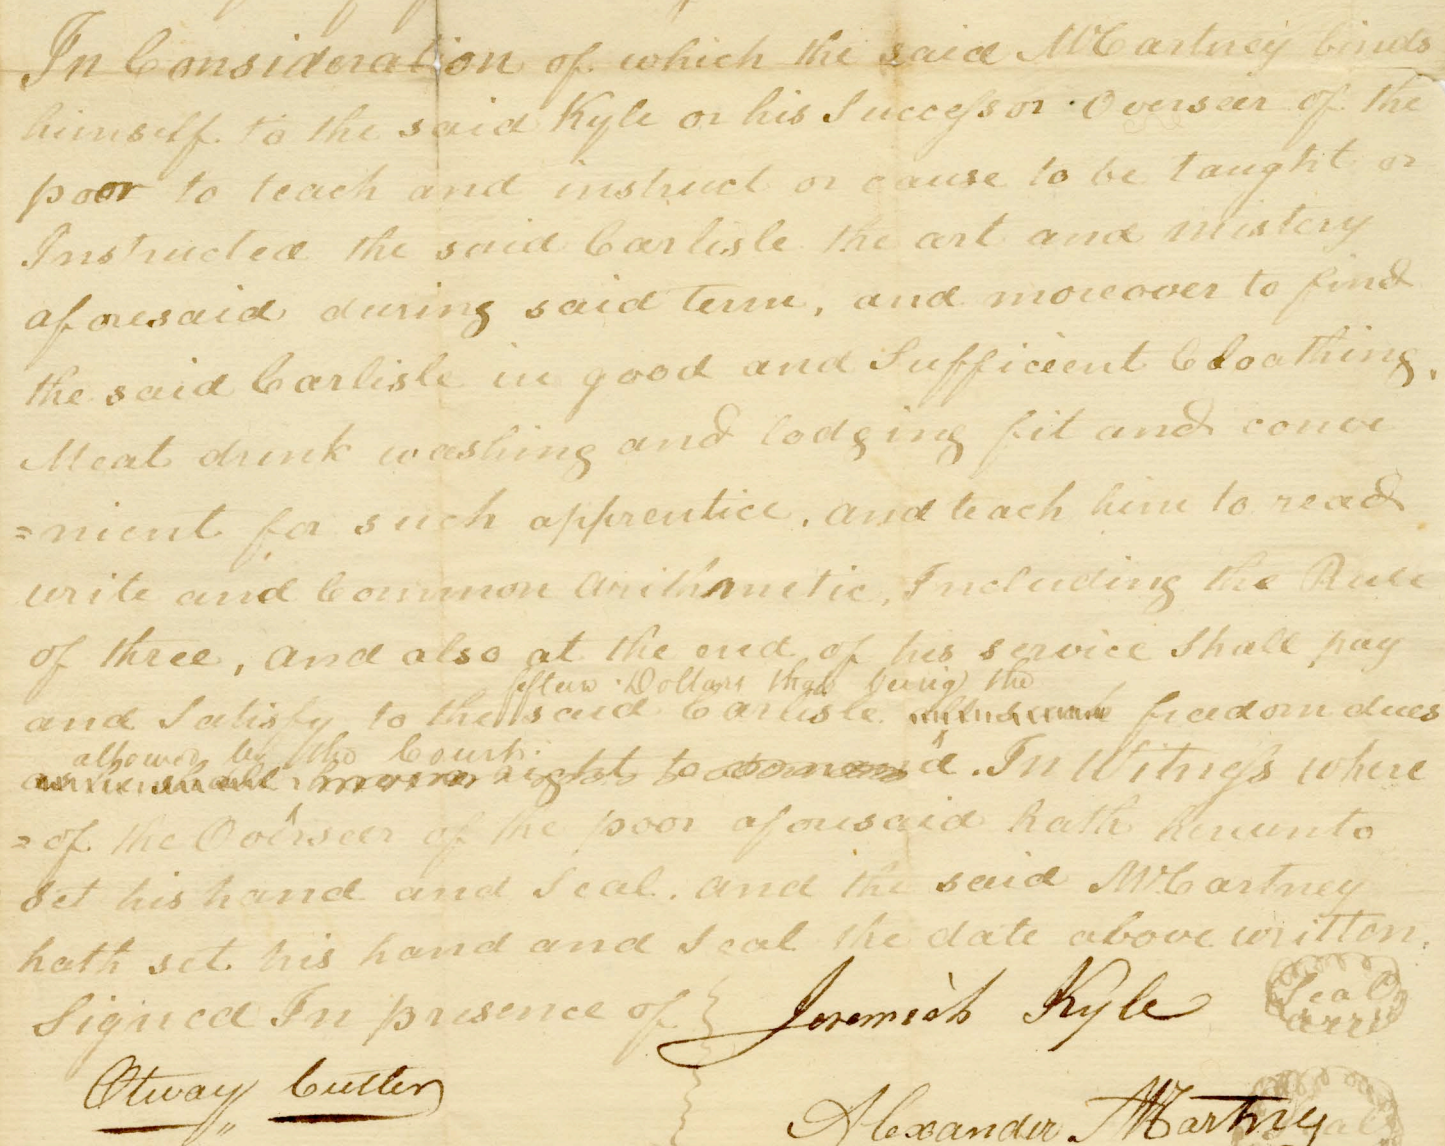 In Consideration of which the said McCartney binds
himself to the said Kyle or his Successor Overseer of the
poor to teach and instruct or cause to be taught or
Instructed the said Carlisle the art and mistery
aforesaid during said term, and moreover to find
the said Carlisle in good and Sufficient Cloathing,
Meat drink washing and lodging fit and conve
=nient for such apprentice, and teach him to read
write and Common Arithmetic, Including the Rule
of three, and also at the end of his service Shall pay
Dollars that being the
and Satisfy to the said Carlisle freedom dues
allowed by the Court.
as he shall right to demand. In Witness where
=of the Overseer of the poor aforesaid hath hereunto
Set his hand and Seal. and the said McCartney
hath set his hand and Seal the date above written,
Signed In presence of
Jeremiah Kyle Seal
Otway Cutler
Alexander McCartney Seal